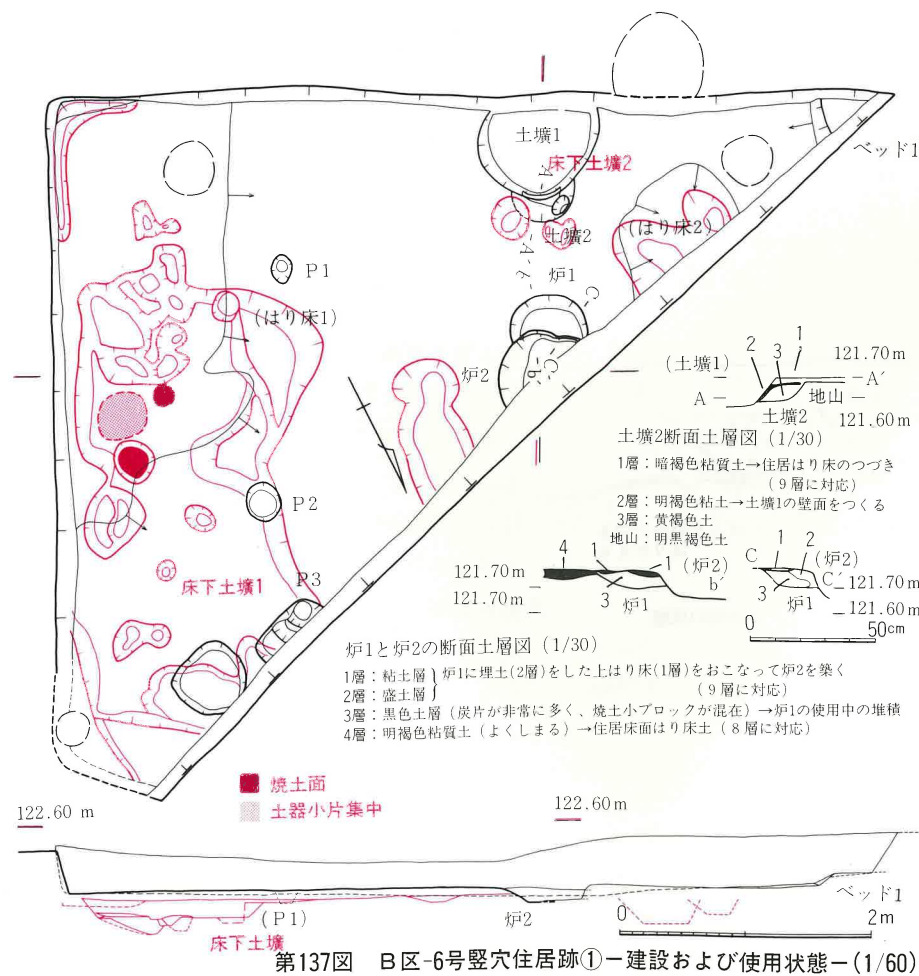 土壙1
床下土壙2
ベッド1
A
土壙2
(はり床2)
A
P1
炉1
C
(はり床1)
炉2
C
b
b´
2 3 1
(土壙1)
121.70m
A A´
地山
土壙2
121.60m
土壙2断面土層図 (1/30)
1層：暗褐色粘質土→住居はり床のつづき
(9層に対応)
2層：明褐色粘土→土壙1の壁面をつくる
3層：黄褐色土
地山：明黒褐色土
P2
4 1 1 (炉2)
121.70m
121.70m
3 炉1
b´
1 2
C (炉2)
C´ 121.70m
3 炉1
121.60m
0 50cm
床下土壙1
P3
炉1と炉2の断面土層図 (1/30)
1層：粘土層
2層：盛土層
炉1に埋土(2層)をした上はり床(1層)をおこなって炉2を築く
(9層に対応)
3層：黒色土層（炭片が非常に多く、焼土小ブロックが混在）→炉1の使用中の堆積
4層：明褐色粘質土（よくしまる）→住居床面はり床土（8層に対応）
焼土面
土器小片集中
122.60 m
122.60m
(P1)
炉2
ベッド1
床下土壙
0 2m
第137図 B区-6号竪穴住居跡①－建設および使用状態－(1/60)